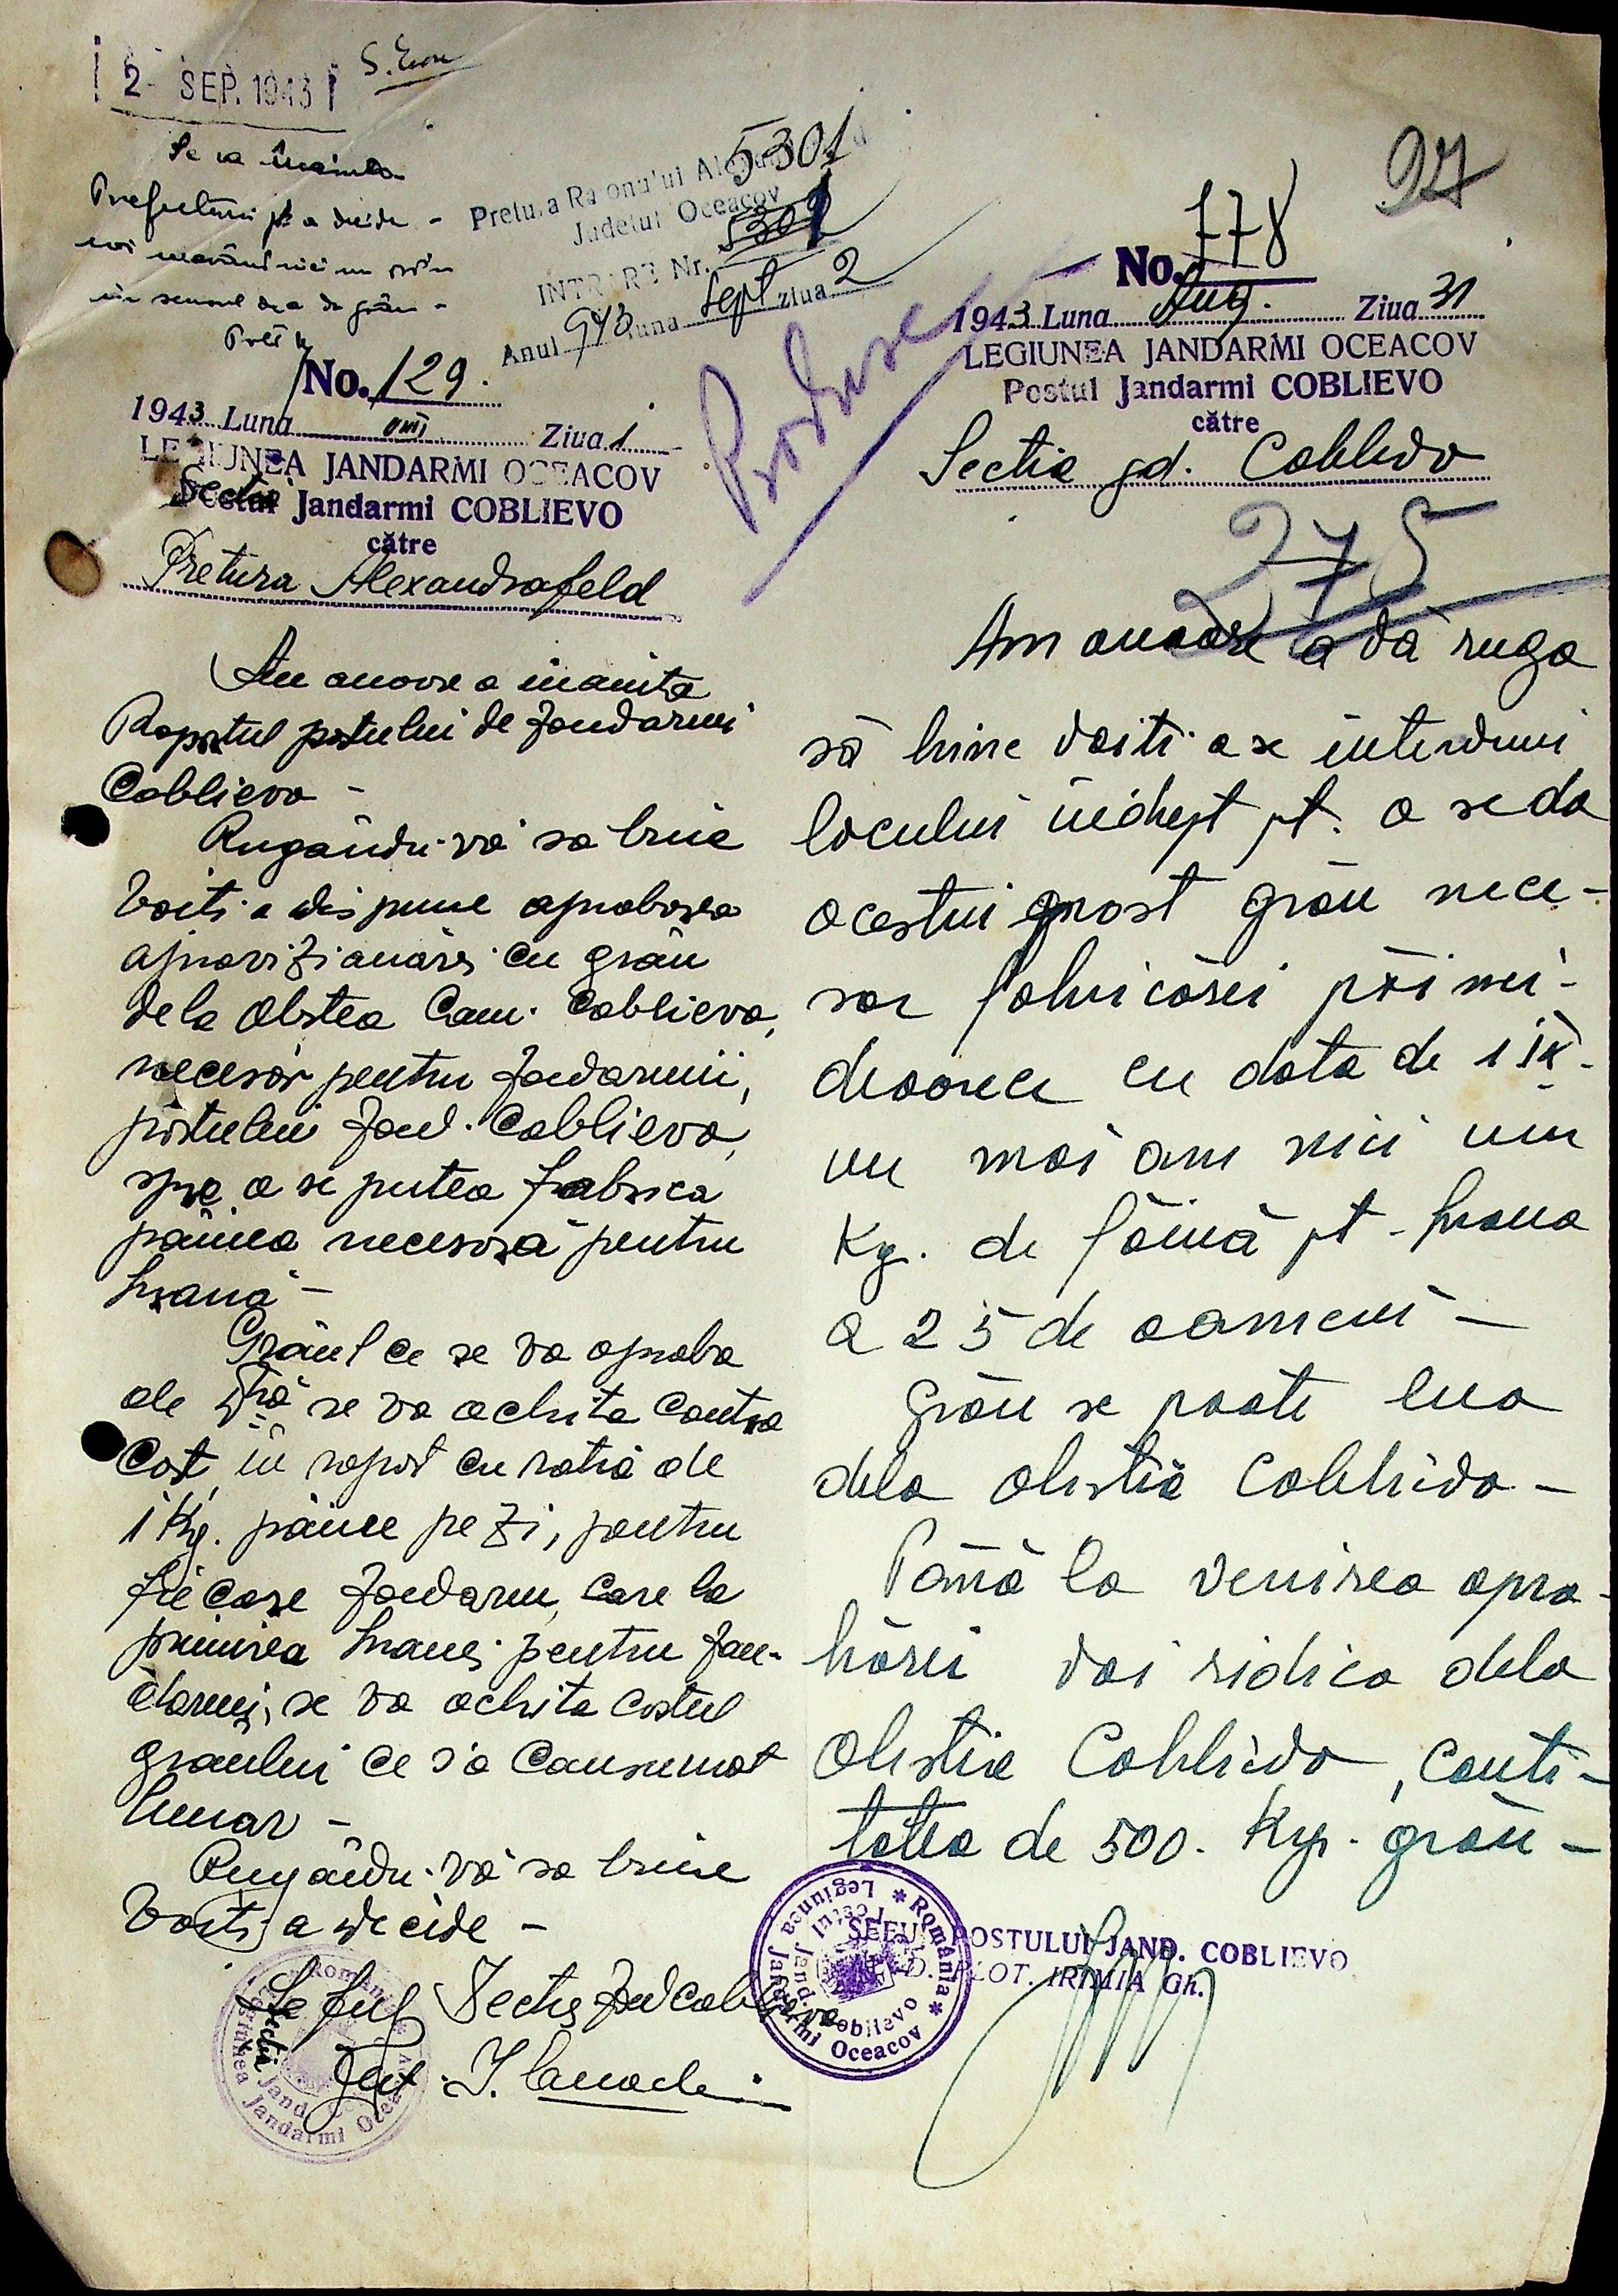 2 - SEP. 1943
Se va înainta
Prefecturii pt a decide -
noi neavând nici un
în sensul de a da grâu -
Pretura Raionului
Judetul Oceacov
5301
INTRARE Nr. 5302
Anul 943 luna Sept ziua 2
Produse
27
No. 129.
1943 Luna VIII Ziua 1
LEGIUNEA JANDARMI OCEACOV
Sectia Jandarmi COBLIEVO
către
Pretura Alexandrofeld
Am onoare a inainta
Raportul postului de Jandarmi
Coblievo -
Rugându-vă sa bine
Voiti a dispune aprobarea
aprovizionărei cu grâu
dela Obstea Com. Coblievo,
necesar pentru Jandarmii,
postului Jand. Coblievo,
spre a se putea fabrica
pâinea necesară pentru
hrană -
Grâul ce se va aproba
de Dvă se va achita contra
Cost, în raport cu ratia de
1 Kg. pâine pe zi, pentru
fie care Jandarm, care la
primirea hranei pentru Jan-
darmi, se va achita costul
graului ce s'a Consumat
lunar -
Rugându-vă sa bine
Voiti a decide -
Seful Sectiei Jand Coblievo
No. 778
1943 Luna Aug. Ziua 31
LEGIUNEA JANDARMI OCEACOV
Postul Jandarmi COBLIEVO
către
Sectia jd. Coblevo
275
Am onoare a vă ruga
să bine voiti a se interveni
locului în drept pt. a se da
acestui post grâu nece-
sar fabricărei pâinei
deoarece cu data de 1 IX.
nu mai am nici un
Kg. de făină pt - hrana
a 25 de oameni -
Grâu se poate lua
dela obstia Coblievo -
Până la venirea apro-
bărei voi ridica dela
Obstia Coblievo, canti-
tatea de 500. Kgr. grâu -
SEFUL POSTULUI JAND. COBLIEVO
PLOT. IRIMIA Gh.
* România * Legiunea Jandarmi Oceacov
Postul Jand. Coblievo
România
Legiunea Jandarmi Oceacov
Sectia Jand.